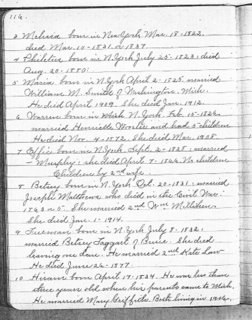 116.
3 Melissa born in New York Mar. 18-1822.
died Mar. 10-1821 or 1827
4 Philetus born in N.York July 25-1823; died
Aug. 20-1850;
5 Maria born in N.York April 2-1825. married
William M. Smith of Washington, Mich.
He died April 1919. She died Jan. 1912.
6 Warren born in Wash. N York Feb. 15-1826.
married Henrietta and had 2 children
He died Nov. 4-1872. She died Mar. 1908.
7 born in N.York Sept. 2-1828. married
Murphy; she died April 8-1862. No children
Children by 2nd wife.
8 Betsey born in N York Oct. 20-1831. married
Joseph Matthews who died in the Civil War.
1862 or 5. She married 2nd Wm McMahon.
She died Jan. 1-1914.
9 Freeman born in N.York July 8-1832.
married Betsey Taggart of Bruce. She died
leaving one dau. He married 2nd Kate Law
He died June 26-1897
10 Hiram born April 17-1834. He was less than
three years old when his parents came to Mich.
He married Mary Griffith. Both living in 1916.